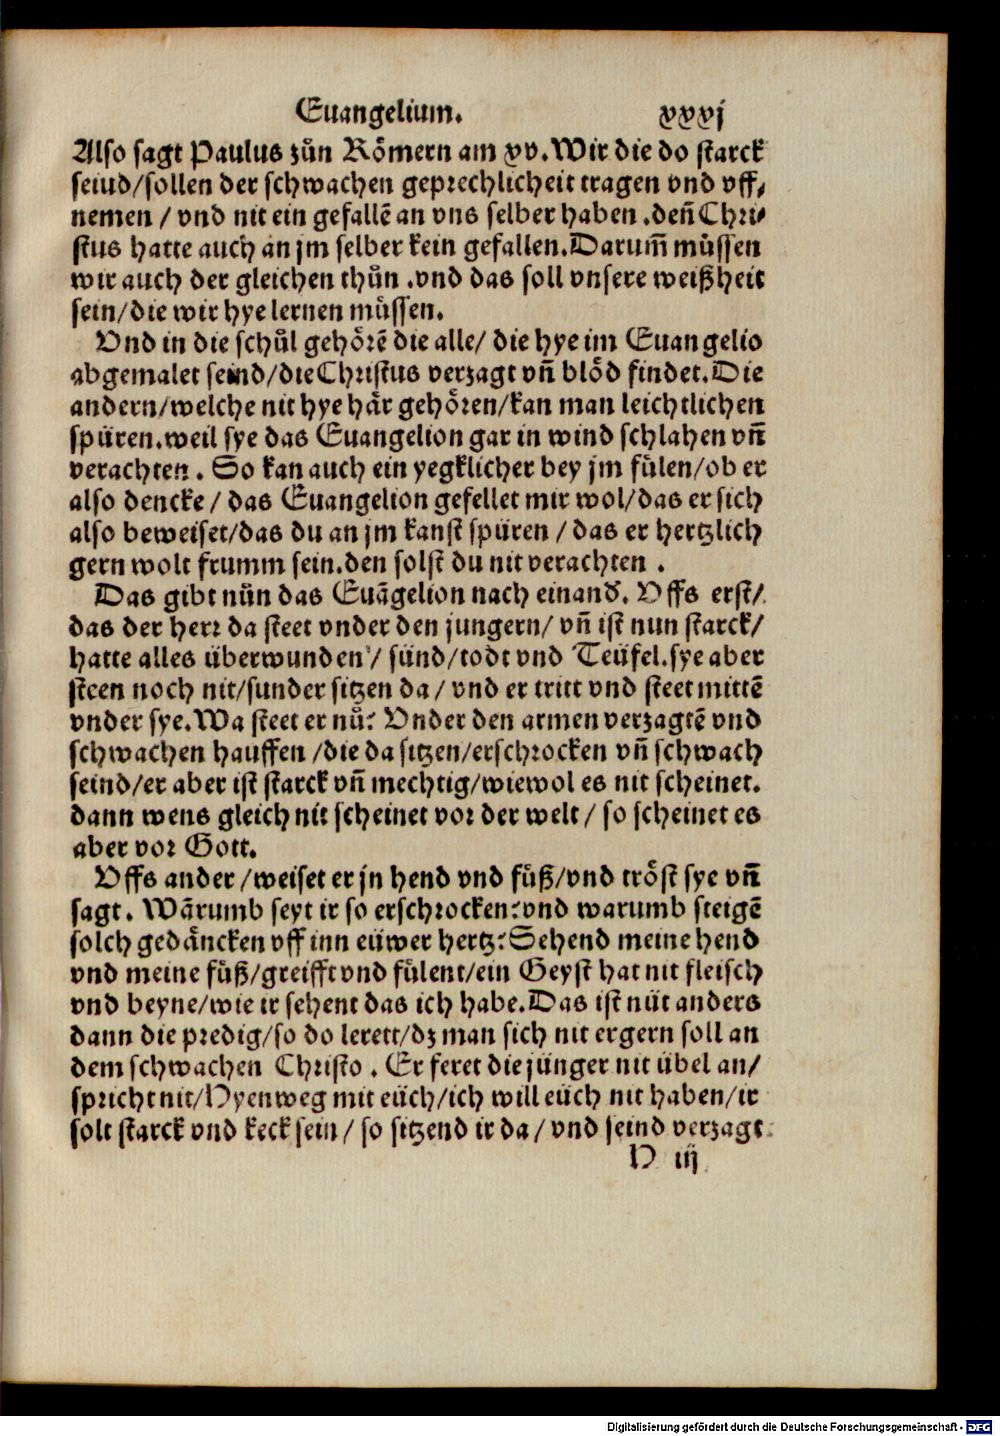 Euangelium. xxxj
Also sagt Paulus zůn Rőmern am xv. Wir die do starck
seiud/sollen der schwachen geprechlicheit tragen vnd vff⸗
nemen / vnd nit ein gefallē an vns selber haben .deñ Chri⸗
stus hatte auch an jm selber kein gefallen. Darum̃ müssen
wir auch der gleichen thůn .vnd das soll vnsere weißheit
sein/die wir hye lernen müssen.
Vnd in die schůl gehőrē die alle/ die hye im Euangelio
abgemalet seind/die Christus verzagt vñ blőd findet. Die
andern/welche nit hye hår gehőren/kan man leichtlichen
spüren.weil sye das Euangelion gar in wind schlahen vñ
verachten . So kan auch ein yegklicher bey jm fülen/ob er
also dencke / das Euangelion gefellet mir wol/das er sich
also beweiset/das du an jm kanst spüren / das er hertzlich
gern wolt frumm sein.den solst du nit verachten .
Das gibt nůn das Euãgelion nach einand̃. Vffs erst/
das der herr da steet vnder den jungern/ vñ ist nun starck/
hatte alles überwunden / sünd/todt vnd Teüfel.sye aber
steen noch nit/sunder sitzen da / vnd er tritt vnd steet mittē
vnder sye. Wa steet er nů? Vnder den armen verzagtē vnd
schwachen hauffen /die da sitzen/erschrocken vñ schwach
seind/er aber ist starck vñ mechtig/wiewol es nit scheinet.
dann wens gleich nit scheinet vor der welt / so scheinet es
aber vor Gott.
Vffs ander /weiset er jn hend vnd füß/vnd trőst sye vñ
sagt. Wārumb seyt ir so erschrocken?vnd warumb steigē
solch gedåncken vff inn eüwer hertz? Sehend meine hend
vnd meine füß/greifft vnd fülent/ein Geyst hat nit fleisch
vnd beyne/wie ir sehent das ich habe. Das ist nüt anders
dann die predig/so do lerett/dz man sich nit ergern soll an
dem schwachen Christo . Er feret die jünger nit übel an/
spricht nit/Hyenweg mit eüch/ich will eüch nit haben/ir
solt starck vnd keck sein / so sitzend ir da / vnd seind verzagt
H iij
Digitalisierung gefördert durch die Deutsche Forschungsgemeinschaft - DFG